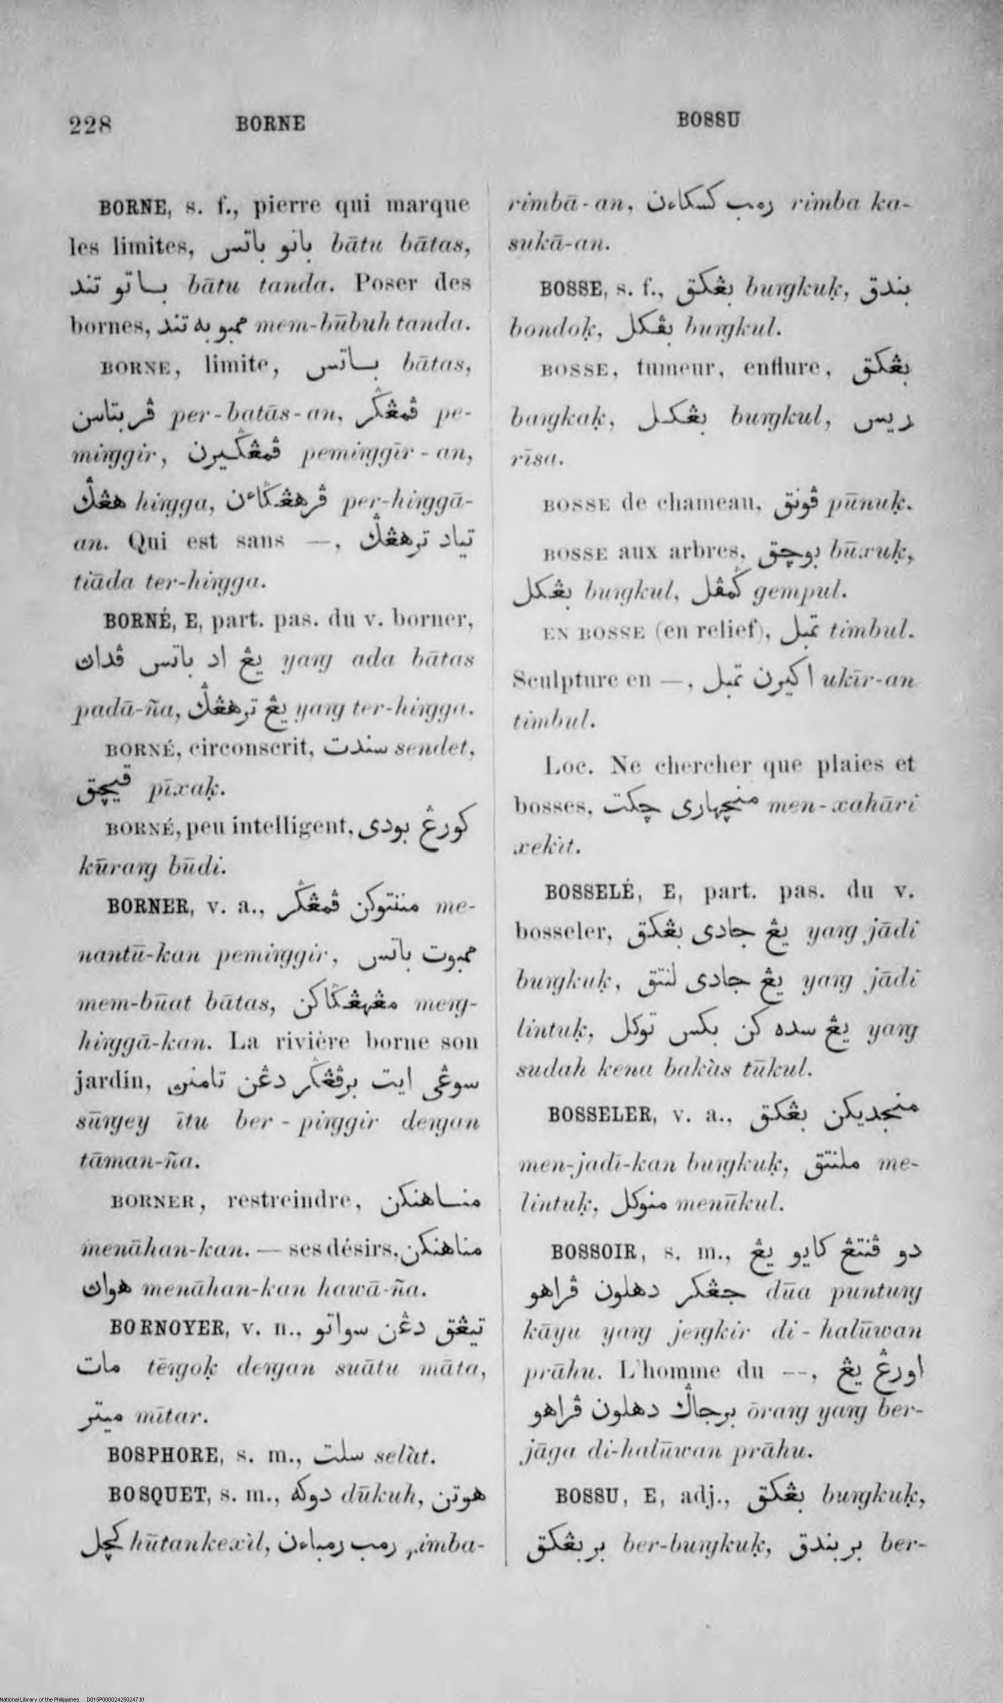 228 BORNE BOSSU
BORNE, s. f., pierre qui marque
les limites, باتو باتس bātu bātas,
باتو تند bātu tanda. Poser des
bornes, ممبوبه تند mem-būbuh tanda.
BORNE, limite, باتس bātas,
ڤربتاسن per-batās-an, ڤمڠݢر pe-
mirggir, ڤمڠݢيرن pemirggīr-an,
هڠݢ hirgga, ڤرهڠݢاءن per-hirggā-
an. Qui est sans —, تياد ترهڠݢ
tiāda ter-hirgga.
BORNÉ, E, part. pas. du v. borner,
يڠ اد باتس ڤداڽ yarg ada bātas
padā-ña, يڠ ترهڠݢ yarg ter-hirgga.
BORNÉ, circonscrit, سندت sendet,
ڤيچق pīxaḳ.
BORNÉ, peu intelligent, كورڠ بودى
kūrarg būdi.
BORNER, v. a., مننتوكن ڤمڠݢر me-
nantū-kan pemirggir, ممبوت باتس
mem-būat bātas, مڠهڠݢاكن merg-
hirggā-kan. La rivière borne son
jardin, سوڠى ايت برڤڠݢر دڠن تامنڽ
sūrgey ītu ber-pirggir dergan
tāman-ña.
BORNER, restreindre, مناهنكن
menāhan-kan. — ses désirs, مناهنكن
هواڽ menāhan-kan hawā-ña.
BORNOYER, v. n., تيڠق دڠن سواتو
مات tērgoḳ dergan suātu māta,
ميتر mītar.
BOSPHORE, s. m., سلت selàt.
BOSQUET, s. m., دوكه dūkuh, هوتن
كچل hūtan kexìl, رمب رمباءن rimba-
rimbā-an, رمب كسكاءن rimba ka-
sukā-an.
BOSSE, s. f., بڠكق burgkuḳ, بندق
bondoḳ, بڠكل burgkul.
BOSSE, tumeur, enflure, بڠكق
bargkaḳ, بڠكل burgkul, ريس
rīsa.
BOSSE de chameau, ڤونق pūnuḳ.
BOSSE aux arbres, بوچق būxuḳ,
بڠكل burgkul, ݢمڤل gempul.
EN BOSSE (en relief), تمبل timbul.
Sculpture en —, اكيرن تمبل ukīr-an
timbul.
Loc. Ne chercher que plaies et
bosses, منچهارى چكت men-xahāri
xekìt.
BOSSELÉ, E, part. pas. du v.
bosseler, يڠ جادى بڠكق yarg jādi
burgkuḳ, يڠ جادى لنتق yarg jādi
lintuḳ, يڠ سده كن بكس توكل yarg
sudah kena bakàs tūkul.
BOSSELER, v. a., منجديكن بڠكق
men-jadī-kan burgkuḳ, ملنتق me-
lintuḳ, منوكل menūkul.
BOSSOIR, s. m., دو ڤنتڠ كايو يڠ
جڠكر دهلون ڤراهو dūa punturg
kāyu yarg jergkir di-halūwan
prāhu. L'homme du —, اورڠ يڠ
برجاݢ دهلون ڤراهو ōrarg yarg ber-
jāga di-halūwan prāhu.
BOSSU, E, adj., بڠكق burgkuḳ,
بربڠكق ber-burgkuḳ, بربندق ber-
National Library of the Philippines